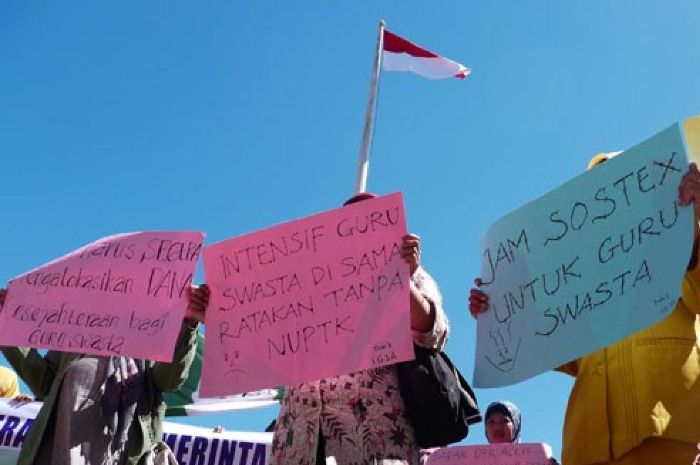 HARUS SEGERA
mengalokasikan DANA
kesejahteraan bagi
GURU SWASTA
INTENSIF GURU
SWASTA DI SAMA
RATAKAN TANPA
NUPTK
JAM SOSTEX
UNTUK GURU
SWASTA
PEMERINTA
BAPAK DPR ACEH